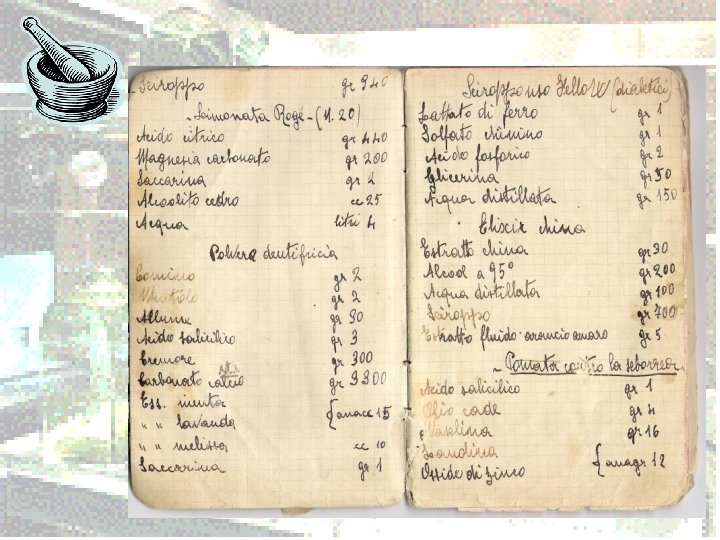 Sciroppo gr 940
- Limonata Rogé - (N. 20)
Acido citrico gr 440
Magnesia carbonato gr 200
Saccarina gr 2
Alcoolito cedro cc 25
Acqua litri 4
Polvere dentifricia
Carminio gr 2
gr 2
Allume gr 30
Acido salicilico gr 3
Cremore gr 300
Carbonato calcio gr 3300
Ess. menta
" " lavanda { ana cc 15
" " melissa cc 10
Saccarina gr 1
Sciroppo uso Fellow (diabetici)
Lattato di ferro gr 1
Solfato chinino gr 1
Acido fosforico gr 2
Glicerina gr 50
Acqua distillata gr 150
Elixir china
Estratto china gr 30
Alcool a 95° gr 200
Acqua distillata gr 100
Sciroppo gr 700
Estratto fluido arancio amaro gr 5
- Pomata contro la seborrea
Acido salicilico gr 1
Olio cade gr 4
Vaselina gr 16
Lanolina
Ossido di zinco { ana gr 12